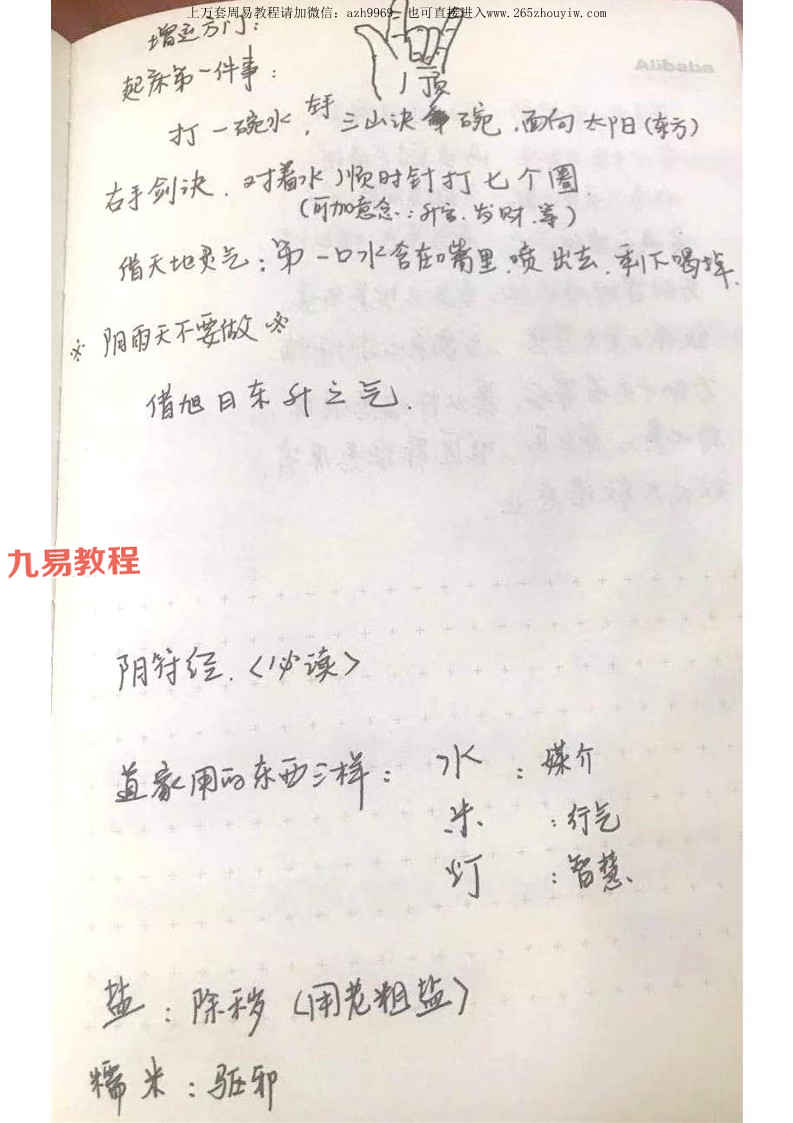 上万套周易教程请加微信：azh9969 也可直接进入www.265zhouyiw.com
Alibaba
增运方门：
起床第一件事：
顶
打一碗水，左手三山诀 碗，面向太阳(东方)
右手剑诀，对着水顺时针打七个圈
(可加意念：升官，发财，等)
借天地灵气：第一口水含在嘴里，喷出去，剩下喝掉.
※ 阴雨天不要做 ※
借旭日东升之气.
九易教程
阴符经.〈必读〉
道家用的东西三样：水：媒介
米：行气
灯：智慧、
盐：除秽(用老粗盐)
糯米：驱邪